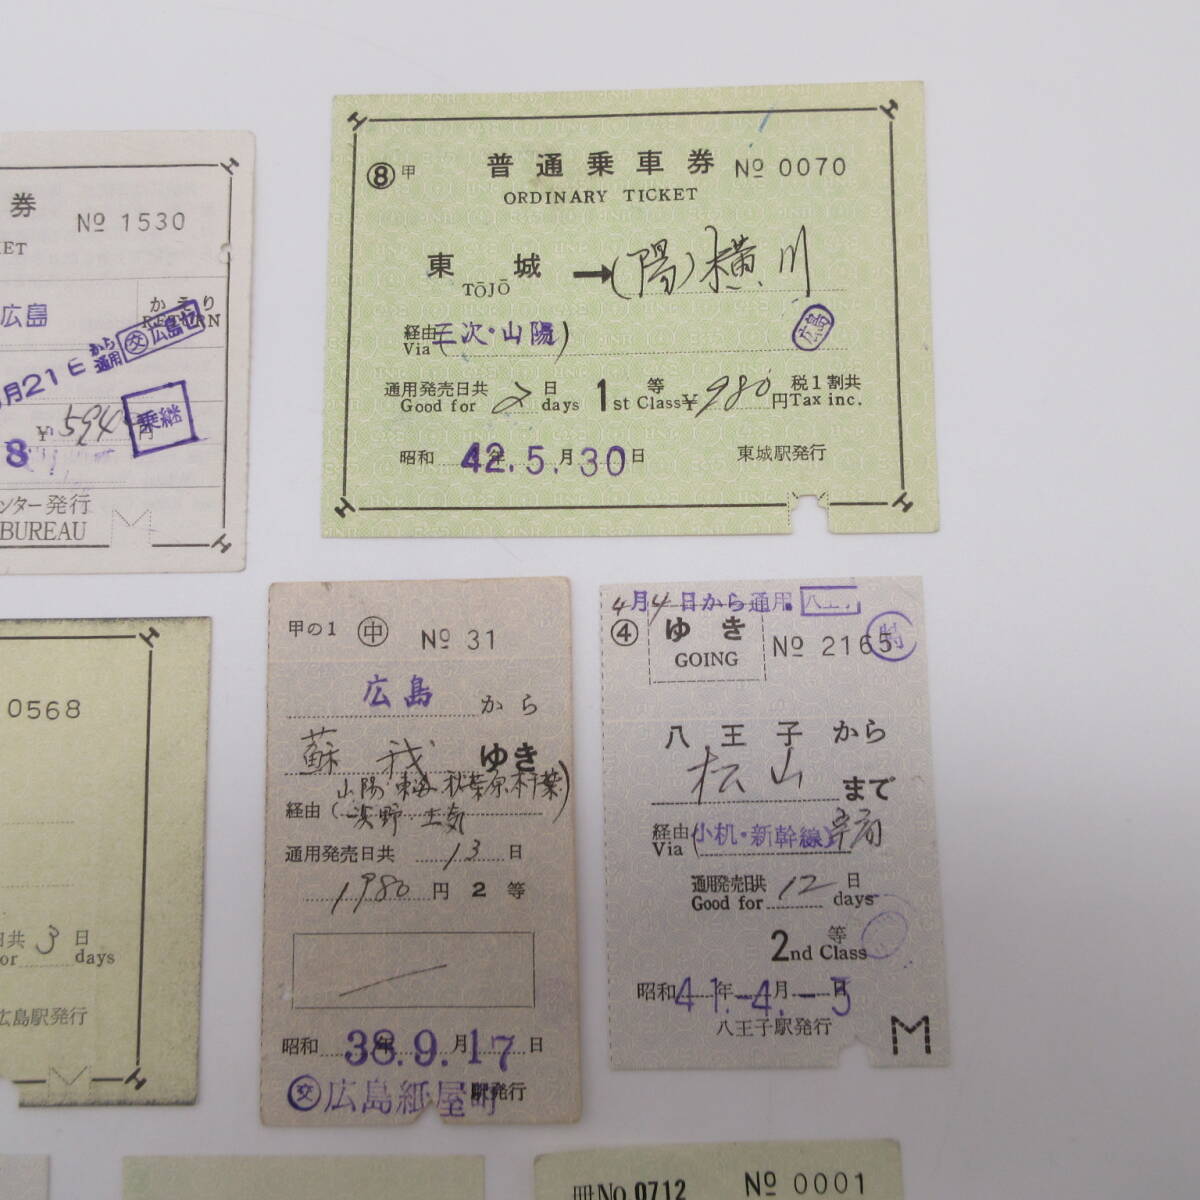 券 No 1530
KET
広島 かえり
RETURN
月21日から通用 交 広島セ
¥594円 乗継
8
ンター発行
BUREAU
⑧甲 普通乗車券 No 0070
ORDINARY TICKET
東城 → (陽)横川
TŌJŌ
経由 三次・山陽)
Via (
広島
通用発売日共 2 日 1 等 ¥980円 税1割共
Good for days 1st Class Tax inc.
昭和 42年.5.月30日 東城駅発行
0568
日共 3 日
or days
広島駅発行
甲の1 ㊥ No 31
広島 から
蘇我 ゆき
山陽・東海 秋葉原 千葉)
経由 (誉田・土気
通用発売日共 13 日
1980 円 2 等
昭和 38年.9.月17日
交 広島紙屋町 駅発行
4月4日から通用. 八王子
④ ゆき No 2165
GOING
八王子 から
松山 まで
経由 (小机・新幹線)
Via
通用発売日共 12 日
Good for days
2 等
2nd Class
昭和 41年-4月-3日
八王子駅発行
M
冊No.0712 No 0001